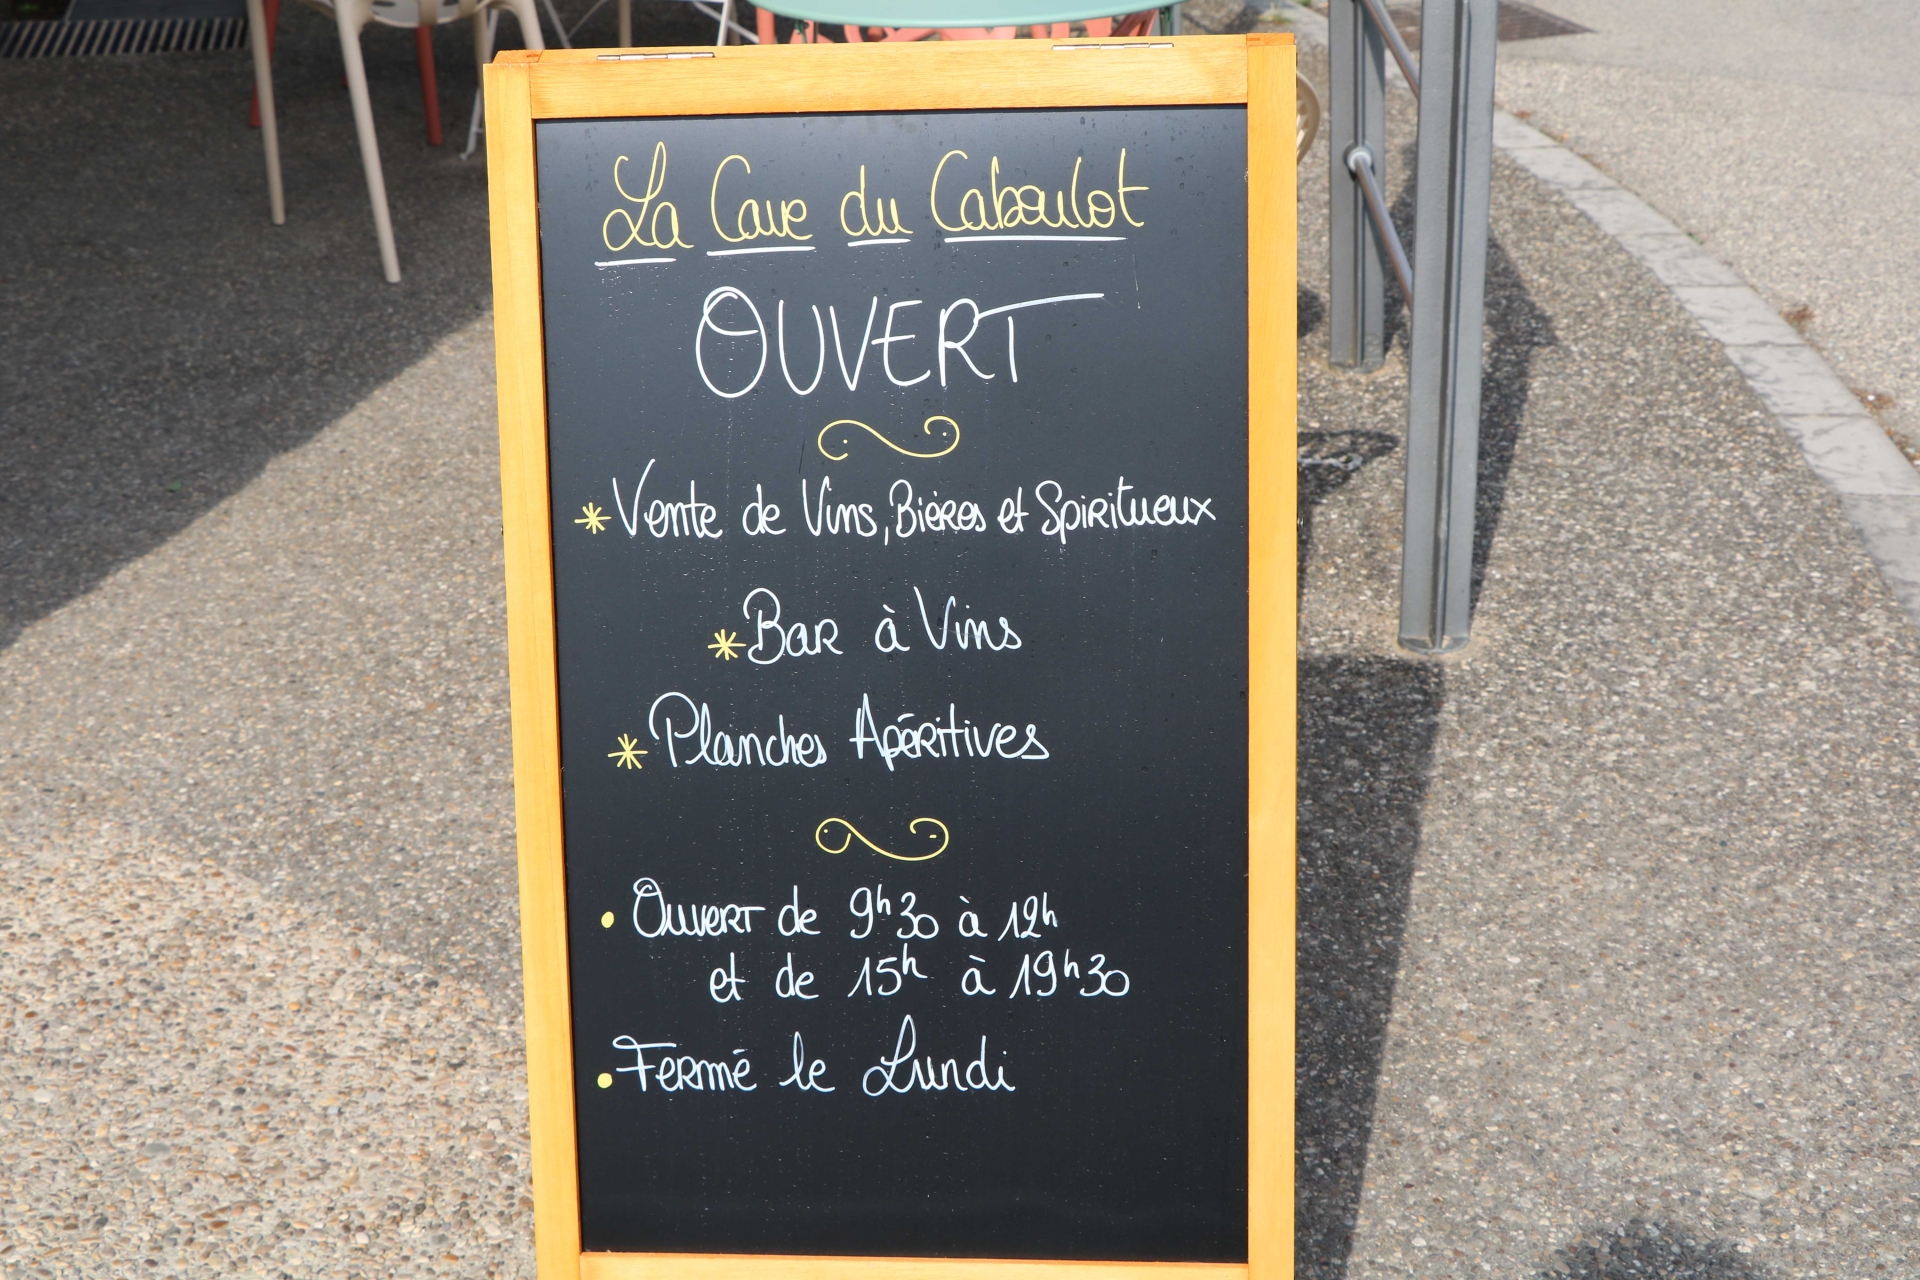 La Cave du Caboulot
OUVERT
* Vente de Vins, Bières et Spiritueux
* Bar à Vins
* Planches Apéritives
• Ouvert de 9h30 à 12h
et de 15h à 19h30
• Fermé le Lundi